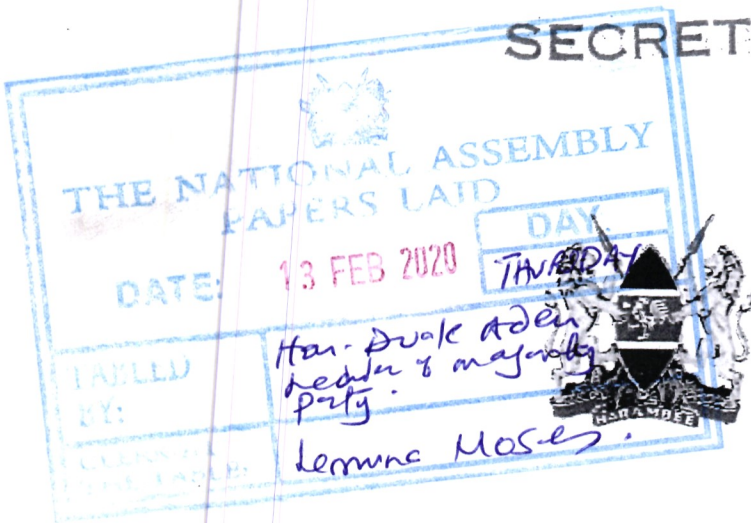 SECRET
THE NATIONAL ASSEMBLY
PAPERS LAID
DATE: 13 FEB 2020
DAY
THURSDAY
TABLED
BY:
Hon. Duale Aden
Leader of majority
Party.
CLERK-AT
THE-TABLE:
Lemuna Moses.
HARAMBEE